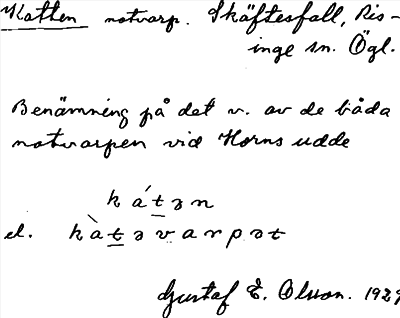 Katten notvarp. Skäftesfall, Ris-
inge sn. Ögl.
Benämning på det v. av de båda
notvarpen vid Horns udde
k á t ə n
el. k à t ə v a r p ə t
Gustaf E. Olsson. 1929